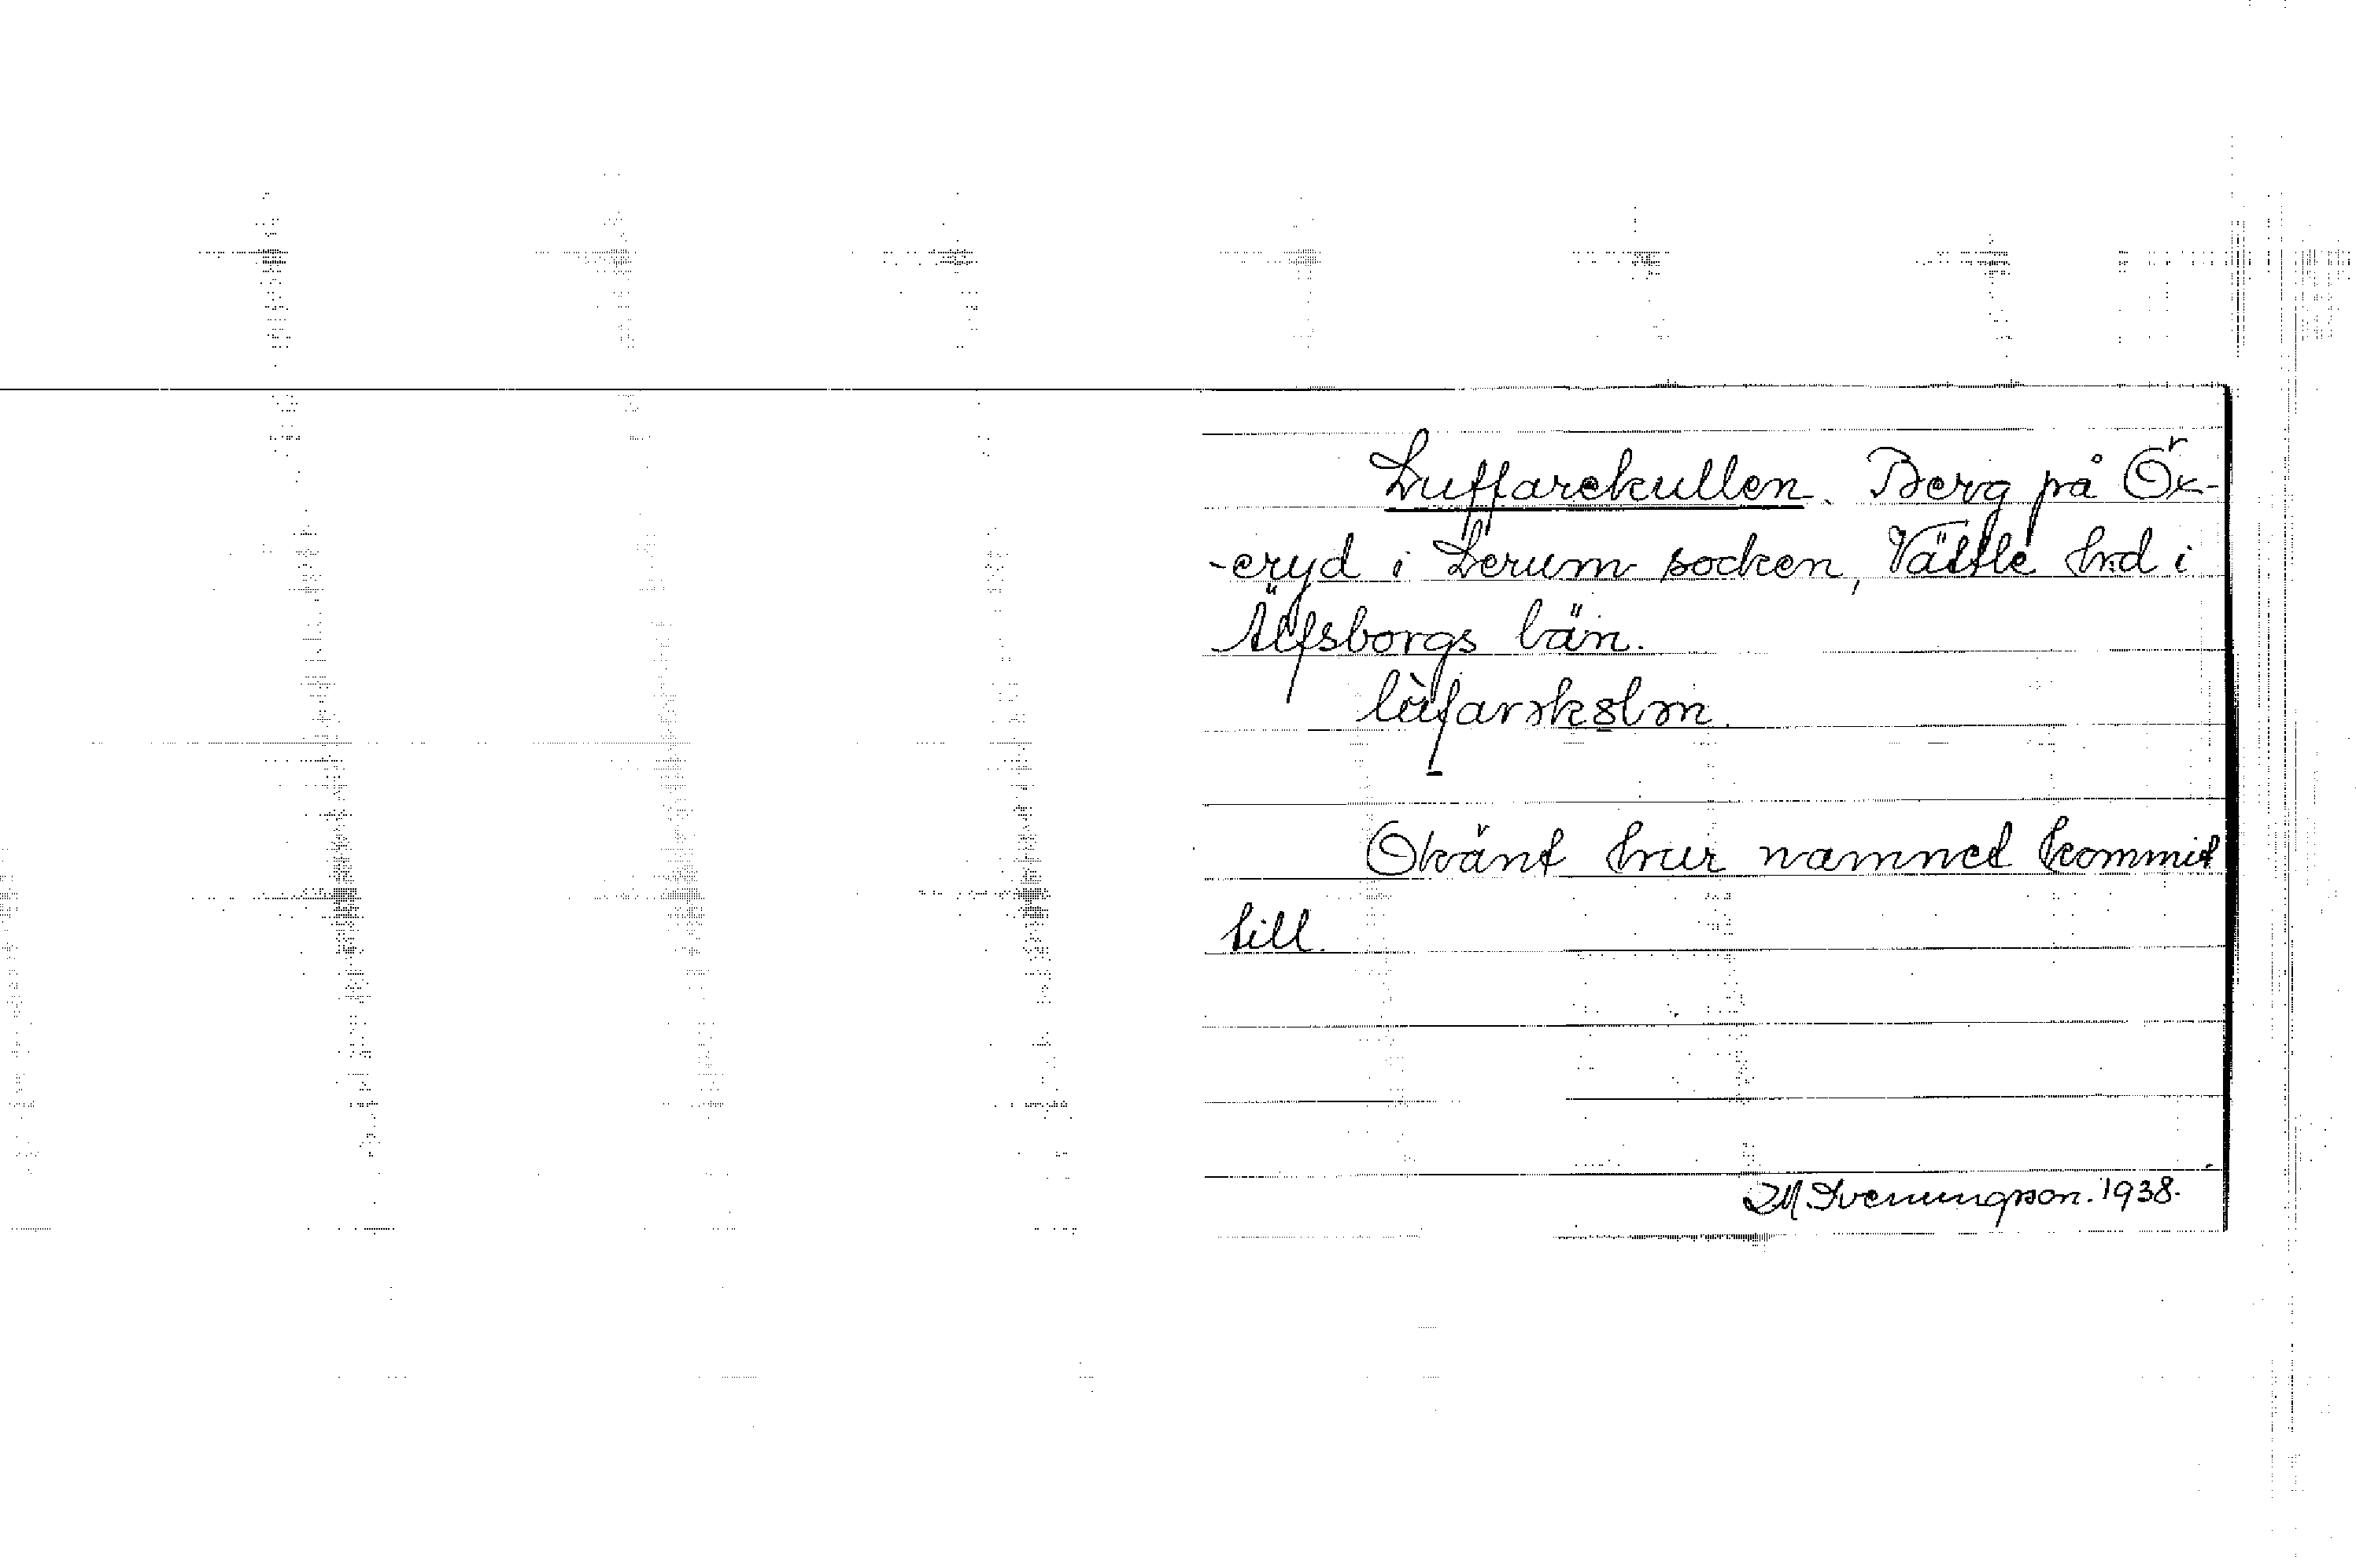 Luffarekullen. Berg på Öx-
-eryd i Lerum socken, Vättle hrd i
Älfsborgs län.
Okänt hur namnet kommit
till.
M. Svenungson. 1938.